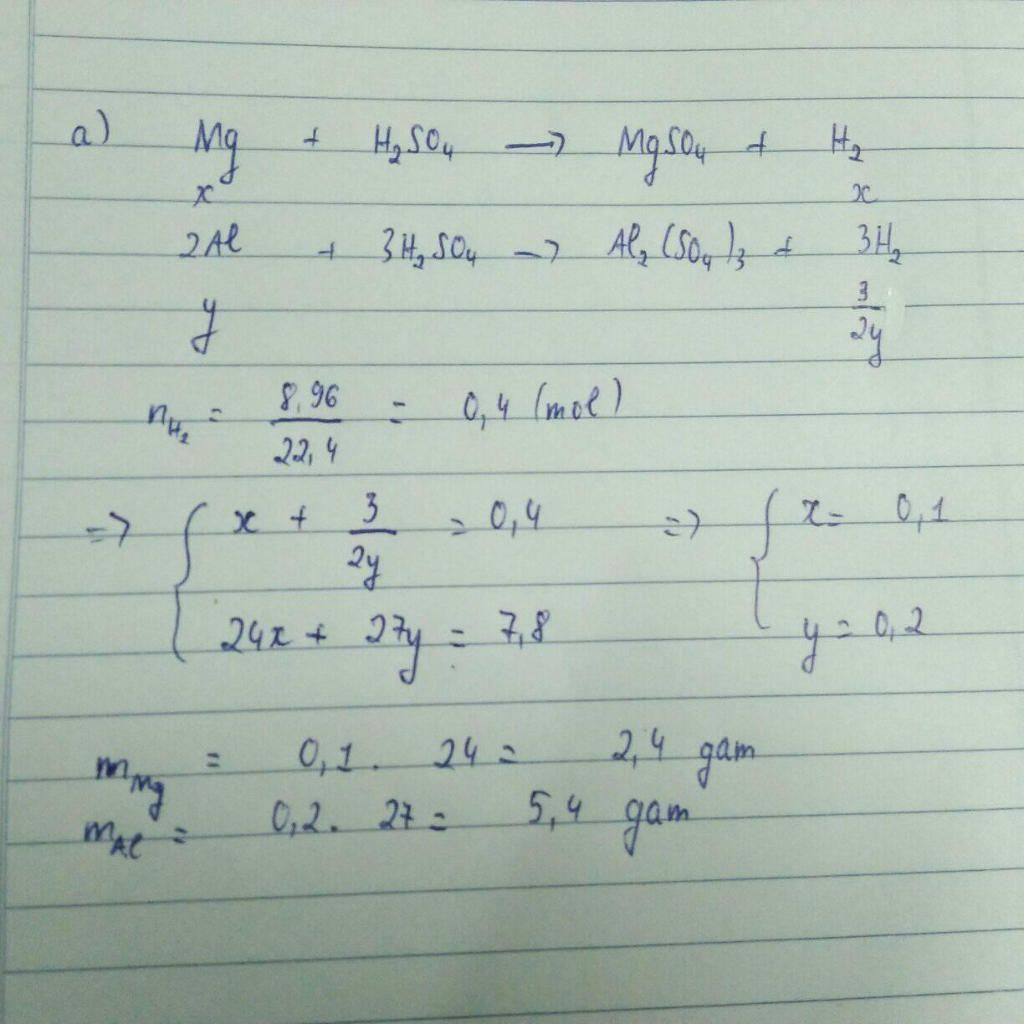 a) Mg + H₂SO₄ → MgSO₄ + H₂
x x
2Al + 3H₂SO₄ → Al₂(SO₄)₃ + 3H₂
y 3/2y
n_H₂ = 8,96/22,4 = 0,4 (mol)
=> { x + 3/2y = 0,4 => { x = 0,1
24x + 27y = 7,8 y = 0,2
m_Mg = 0,1 . 24 = 2,4 gam
m_Al = 0,2 . 27 = 5,4 gam